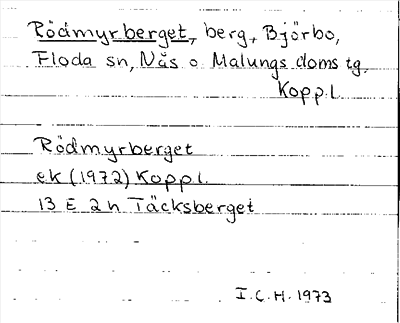 Rödmyrberget, berg, Björbo,
Floda sn, Nås o Malungs doms tg,
Kopp.l.
Rödmyrberget
ek (1972) Kopp l.
13 E 2 h Täcksberget
I.C.H. 1973